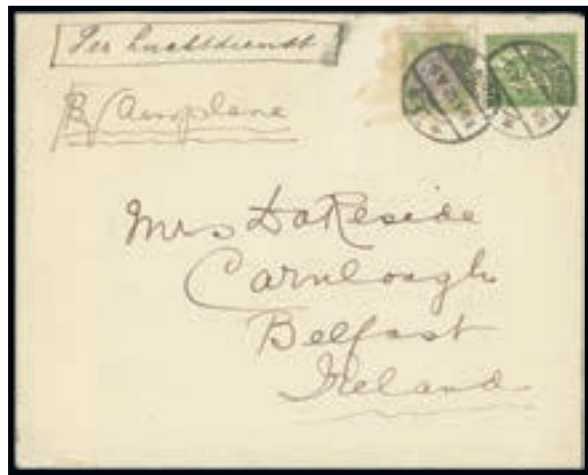 Per Luchtdienst
By Aeroplane
Mrs
Carnlough
Belfast
Ireland